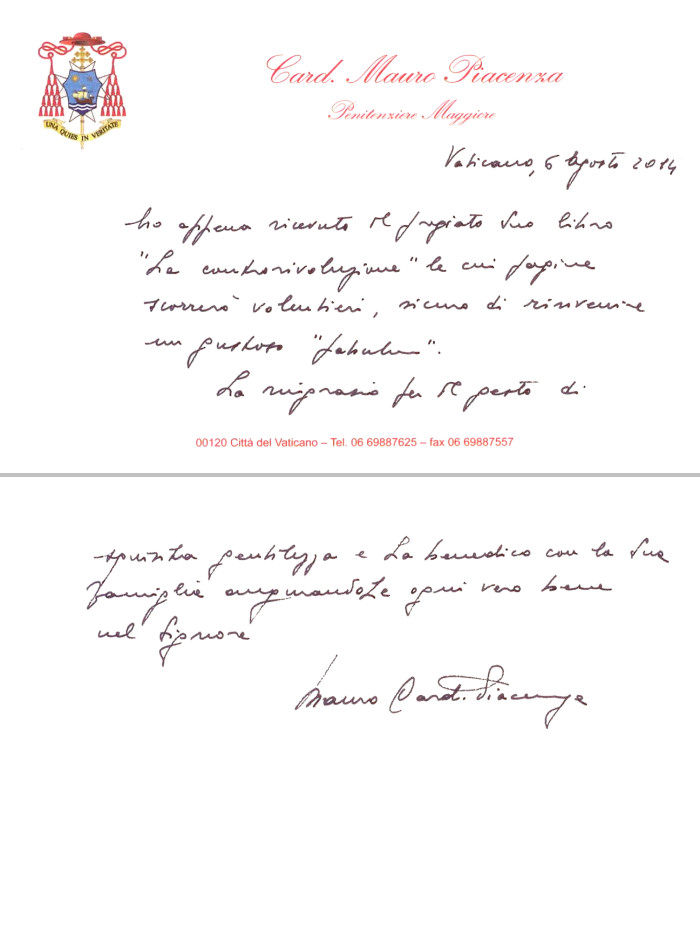 UNA QUIES IN VERITATE
Card. Mauro Piacenza
Penitenziere Maggiore
Vaticano, 6 Agosto 2014
ho appena ricevuto il pregiato Suo libro
"La controrivoluzione" le cui pagine
scorrerò volentieri, sicuro di rinvenire
un gustoso "pabulum".
La ringrazio per il gesto di
00120 Città del Vaticano – Tel. 06 69887625 – fax 06 69887557
squisita gentilezza e La benedico con la Sua
famiglia augurandoLe ogni vero bene
nel Signore
Mauro Card. Piacenza